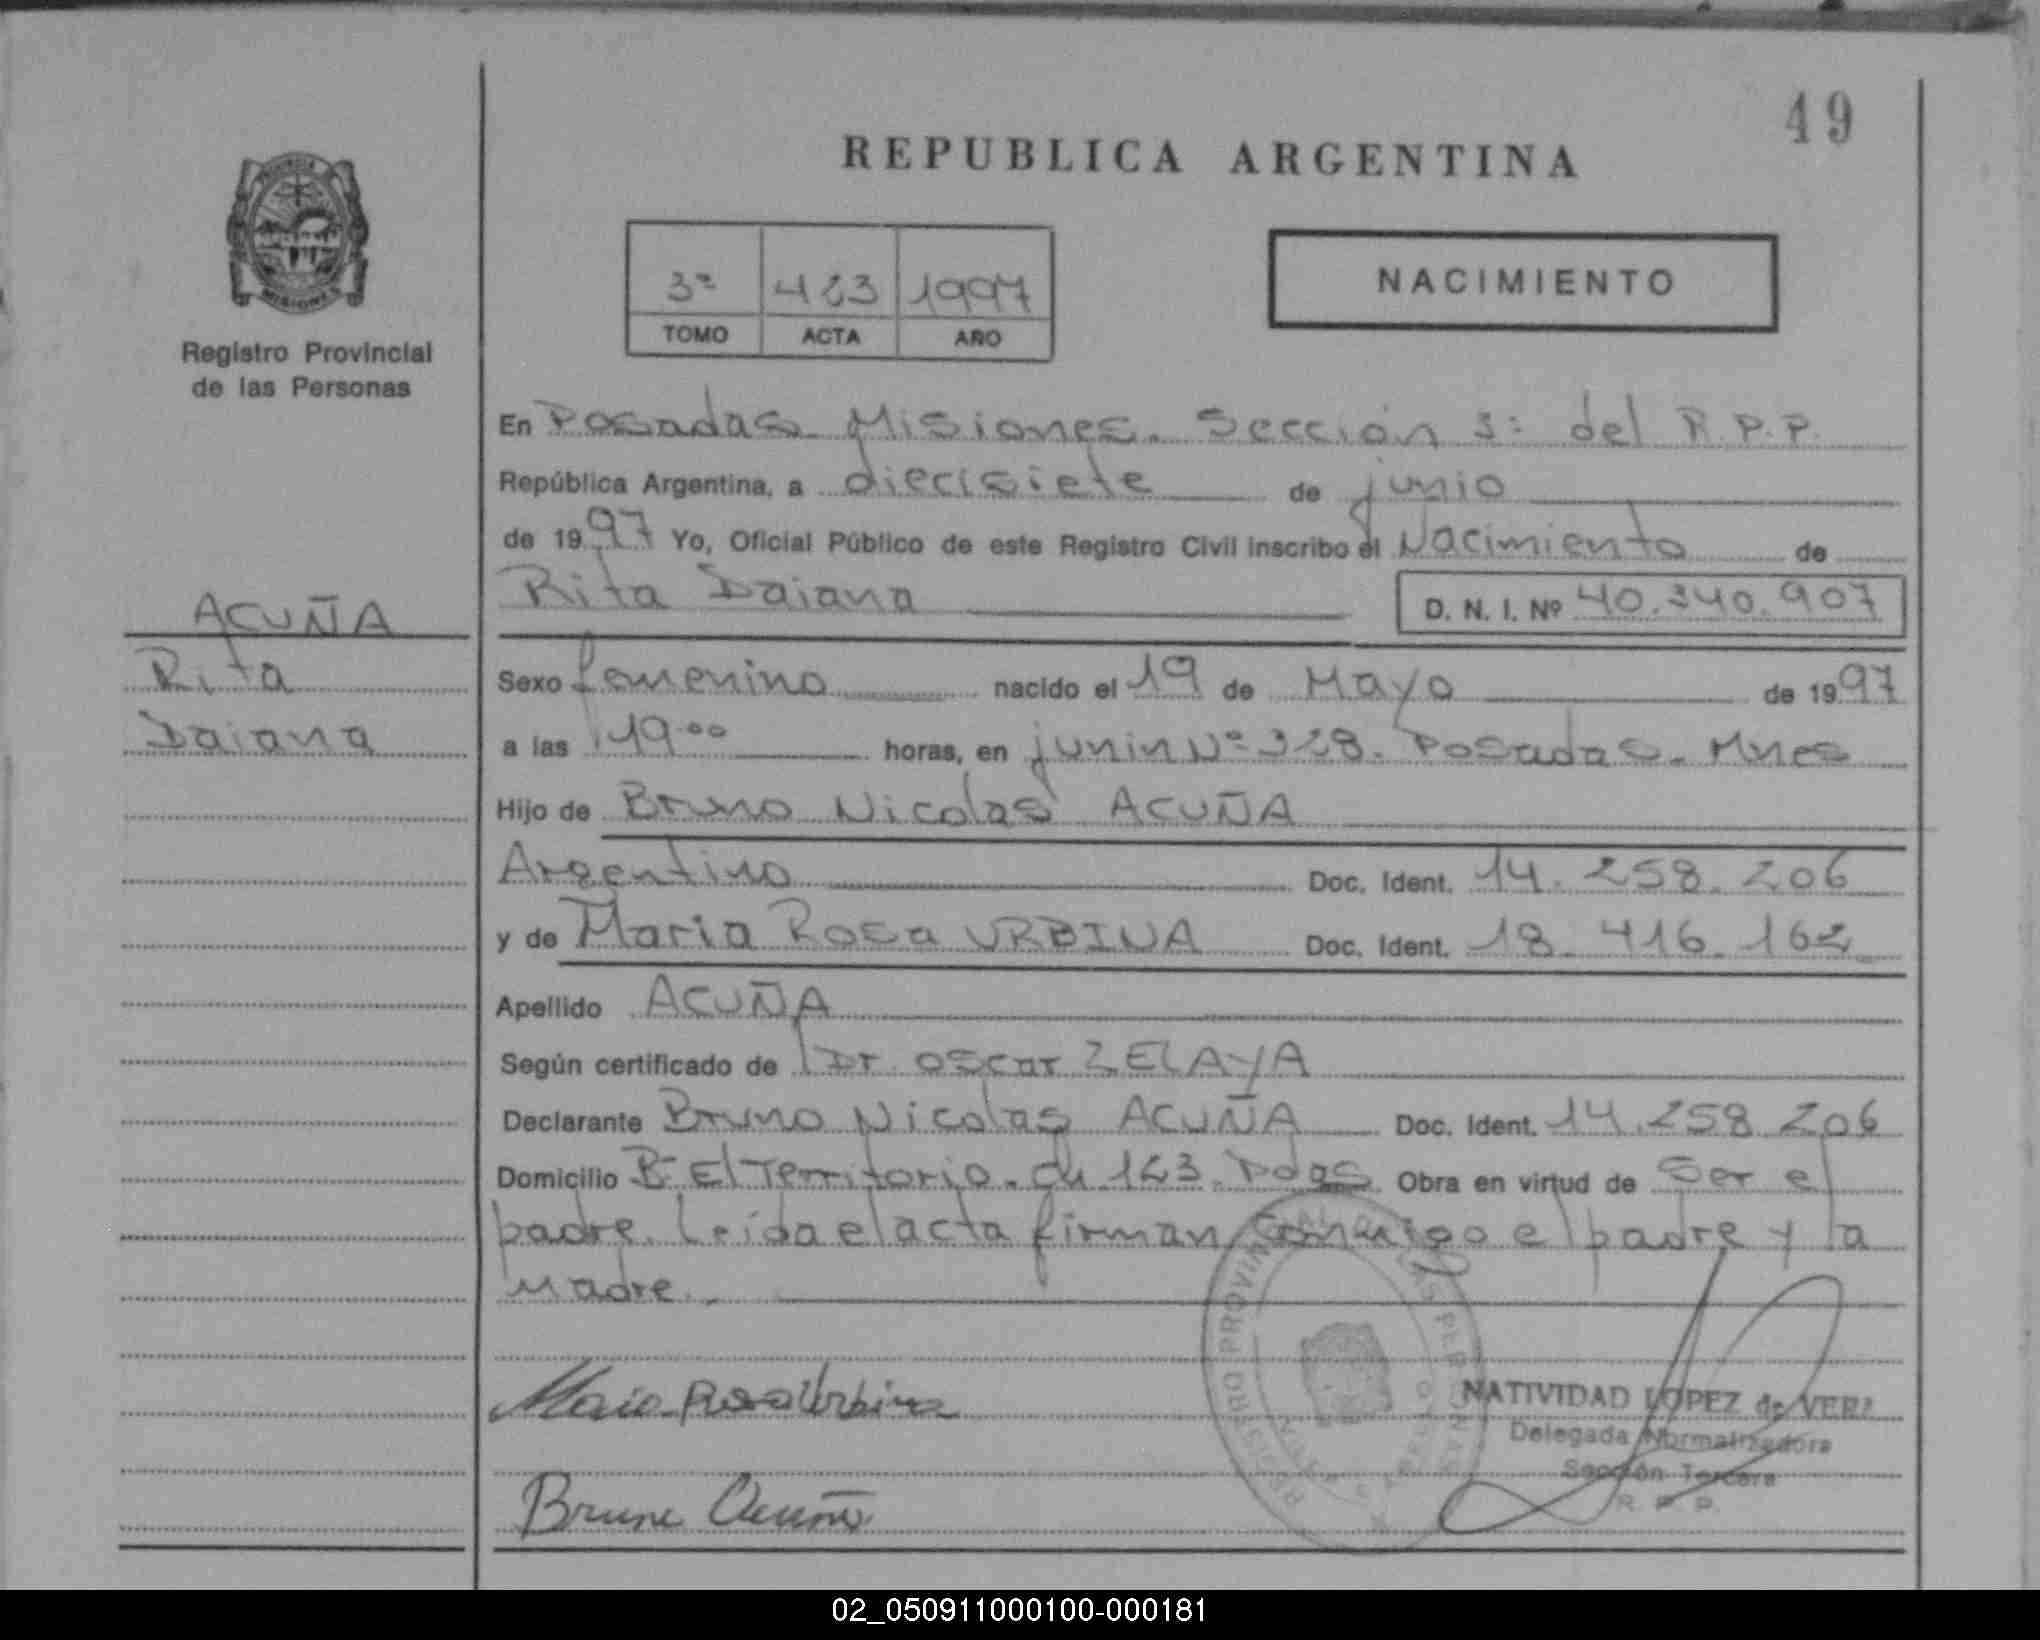 49
REPUBLICA ARGENTINA
3ª 423 1997
TOMO ACTA AÑO
NACIMIENTO
MISIONES
Registro Provincial
de las Personas
En Posadas Misiones. Sección 3ª del R.P.P.
República Argentina, a diecisiete de junio
de 1997 Yo, Oficial Público de este Registro Civil inscribo el Nacimiento de
Rita Daiana D. N. I. Nº 40.340.907
ACUÑA
Rita
Daiana
Sexo femenino nacido el 19 de Mayo de 1997
a las 19⁰⁰ horas, en junin Nº 328. Posadas. Mnes
Hijo de Bruno Nicolas ACUÑA
Argentino Doc. Ident. 14.258.206
y de Maria Rosa URBINA Doc. Ident. 18.416.162
Apellido ACUÑA
Según certificado de Dr. Oscar ZELAYA
Declarante Bruno Nicolas ACUÑA Doc. Ident. 14.258.206
Domicilio Bº El Territorio. Ch 123. Pdas Obra en virtud de Ser el
padre. Leida el acta firman conmigo el padre y la
Madre.
Maria Rosa Urbina
NATIVIDAD LOPEZ de VERA
Delegada Normalizadora
Sección Tercera
R. P. P.
Bruno Acuña
02_050911000100-000181